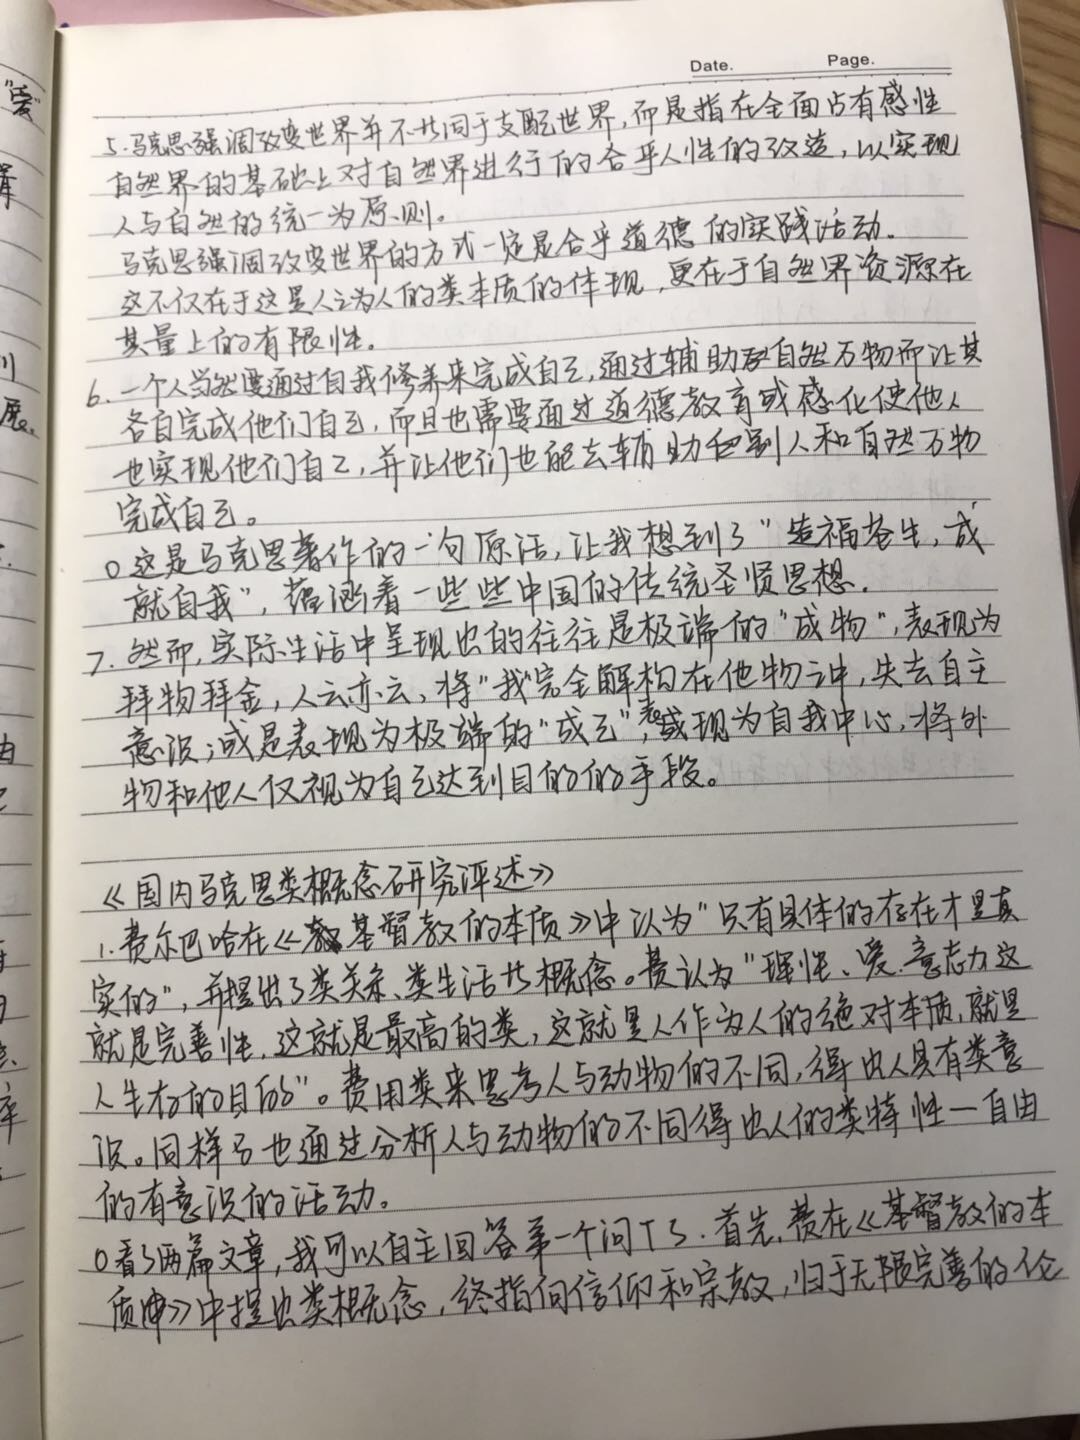 Date. Page.
5.马克思强调改变世界并不共同于支配世界,而是指在全面占有感性
自然界的基础上对自然界进行的合乎人性的改造,以实现
人与自然的统一为原则。
马克思强调改变世界的方式一定是合乎道德的实践活动.
这不仅在于这是人之为人的类本质的体现,更在于自然界资源在
其量上的有限性。
6.一个人当然要通过自我修养来完成自己,通过辅助自然万物而让其
各自完成他们自己,而且也需要通过道德教育或感化使他人
也实现他们自己,并让他们也能去辅助别人和自然万物
完成自己。
○这是马克思著作的一句原话,让我想到了"造福苍生,成
就自我",蕴涵着一些些中国的传统圣贤思想.
7.然而,实际生活中呈现出的往往是极端的"成物",表现为
拜物拜金,人云亦云,将"我"完全解构在他物之中,失去自主
意识;或是表现为极端的"成己",表现为自我中心,将外
物和他人仅视为自己达到目的的手段。
《国内马克思类概念研究评述》
1.费尔巴哈在《基督教的本质》中认为"只有具体的存在才是真
实的",并提出了类关系、类生活共概念。费认为"理性、爱、意志力这
就是完善性,这就是最高的类,这就是人作为人的绝对本质,就是
人生存的目的"。费用类来思考人与动物的不同,得出人具有类意
识。同样马也通过分析人与动物的不同得出人的类特性—自由
的有意识的活动.
○看了两篇文章,我可以自主回答第一个问T了.首先,费在《基督教的本
质》中提出类概念,终指向信仰和宗教,归于无限完善的论
"爱"